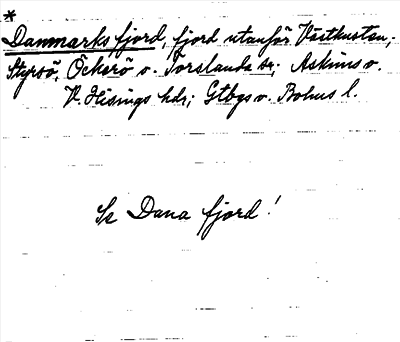 *
Danmarks fjord, fjord utanför Västkusten;
Styrsö, Öckerö o. Torslanda sr; Askims o.
V. Hisings hdr; Gtbgs o. Bohus l.
Se Dana fjord!